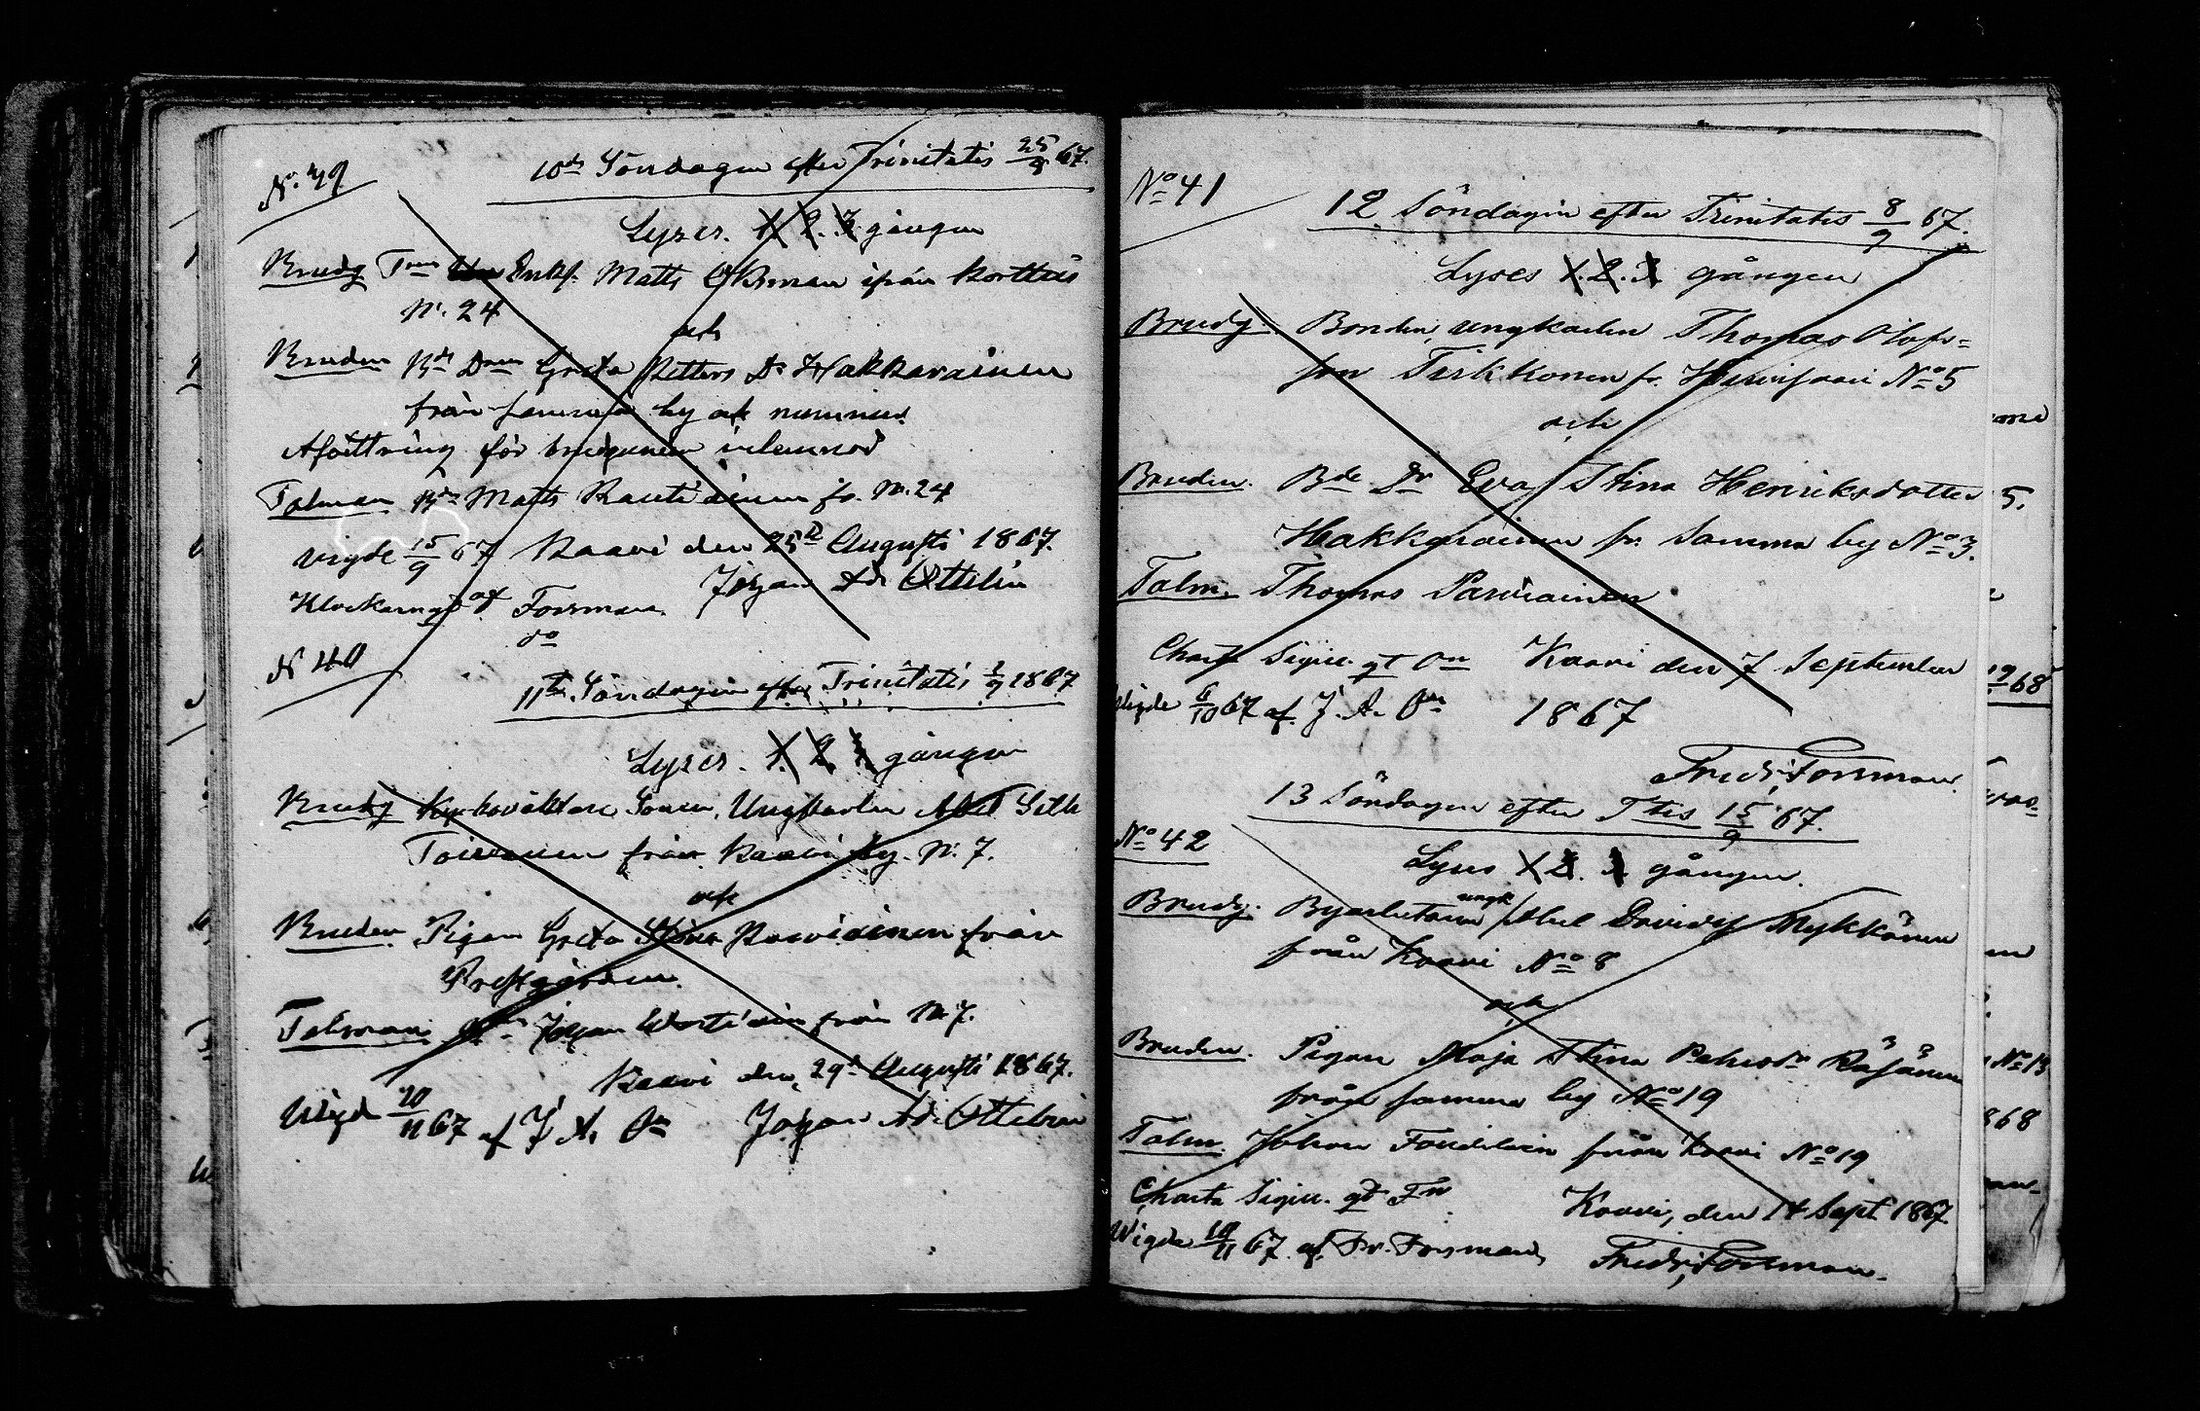 No. 39
10de Söndagen efter Trinitatis 25/8 67.
Lyses. 1. 2. 3 gången
Brudg Enkl. Matts Öhman ifrån Kortteis
N. 24
och
Bruden Greta Petters Dr Hakkarainen
från samma by och nummer.
Afvittring för brudgummen inlemnad
Talman Matts Rautiainen fr. N. 24
vigde 15/9 67 Kaavi den 25 Augusti 1867.
Klockaregd af Forsman Johan Ad. Ottelin
do
N 40
11te Söndagen efter Trinitatis 1/9 1867
Lyses. 1. 2. 3 gången
Brudg Sonen, Ungkarlen Abel
Toivanen från Kaavi by. N. 7.
och
Bruden Pigan Greta Stina Parviainen från
Prestgården.
Talman Johan från N 7.
Kaavi den 29d Augusti 1867.
Vigd 10/11 67 af J. A. On Johan Ad. Ottelin
No 41
12 Söndagen efter Trinitatis 8/9 67.
Lyses 1. 2. 3 gången
Brudg. Bonden, ungkarlen Thomas Olofs=
son Tirkkonen fr. No 5
och
Bruden. Bde Dr Eva Stina Henriksdotter
Hakkarainen fr. Samma by No 3.
Talm. Thomas Parviainen
Charta Sigill. gt On Kaavi den 7 September
Vigde 6/10 67 af. J. A. On 1867
Fredr. Forsman.
13 Söndagen efter Ttis 15/9 67.
No 42
Lyses 1. 2. 3 gången.
ungk
Brudg. Abel Davidss Mykkänen
från Kaavi No 8
och
Bruden. Pigan Maja Stina Räsänen
från samma by No 19
Talm. Johan från Kaavi No 19
Charta Sigill. gt Fn Kaavi, den 14 Sept 1867.
Wigde 10/11 67 af. Fr. Forsman, Fredr. Forsman.